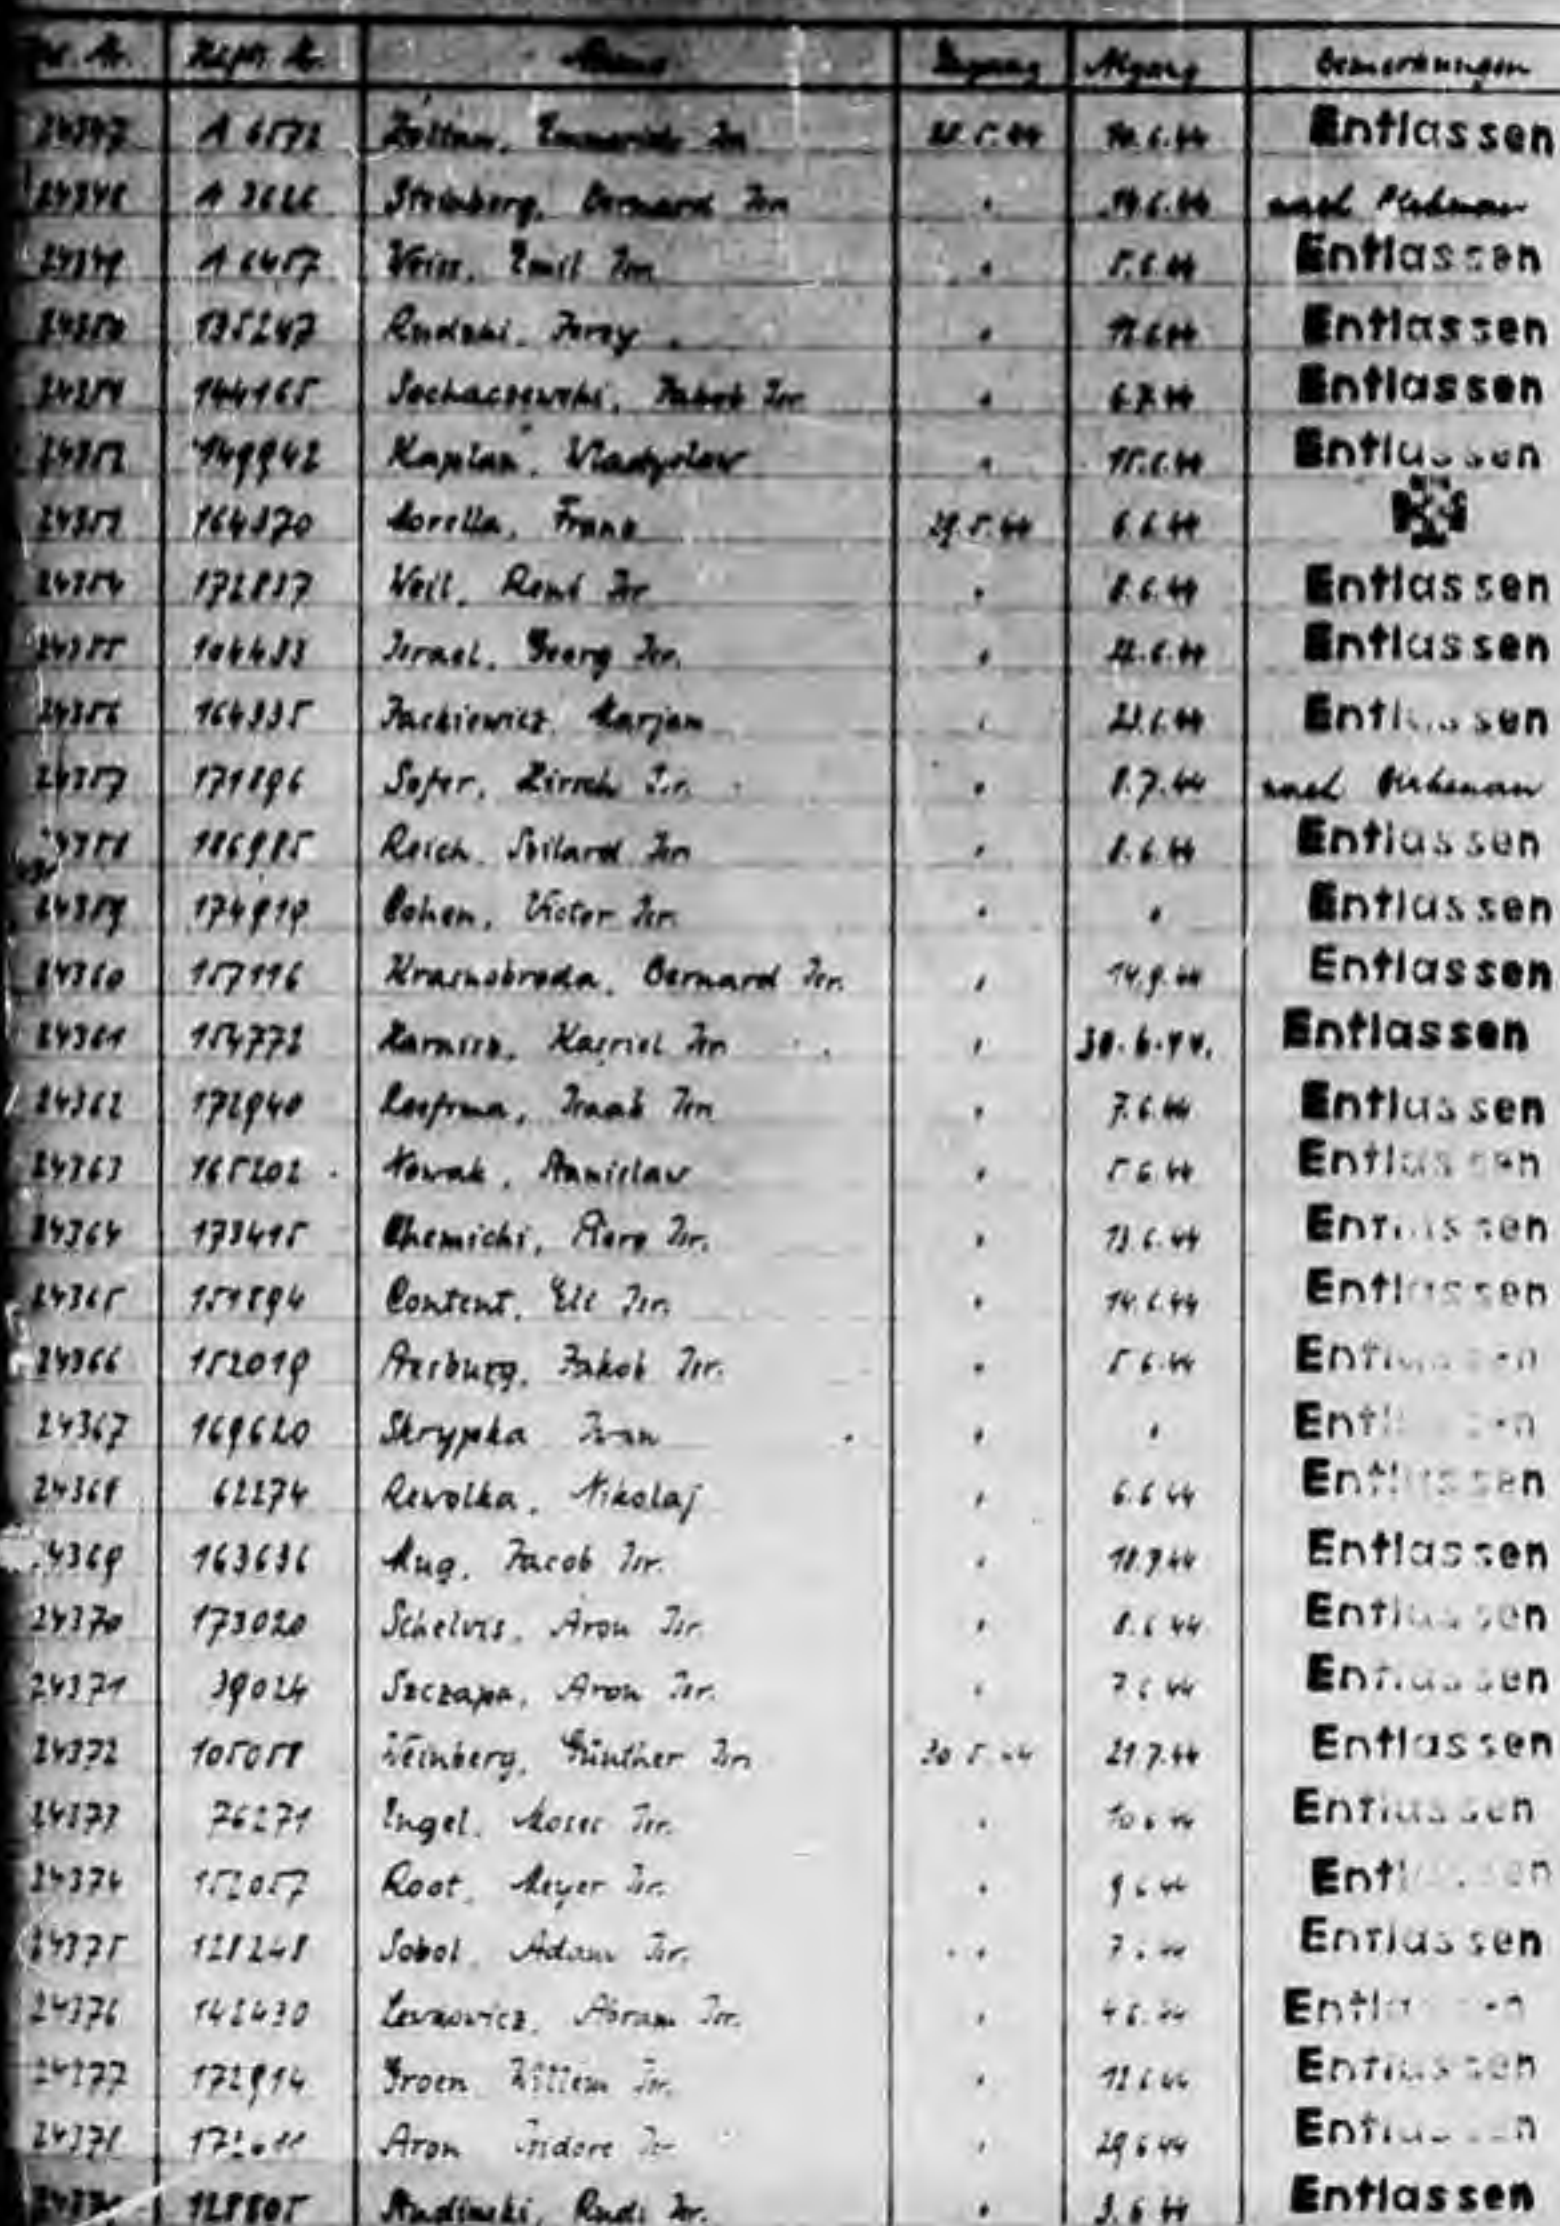 Häftl. Nr. Name Zugang Abgang Bemerkungen
24347 A 6572 Zoltan, Emmerich Isr. 28.5.44 10.6.44 Entlassen
24348 A 3626 Steinberg, Bernard Isr. " 14.6.44 nach Birkenau
24349 A 6457 Weiss, Emil Isr. " 5.6.44 Entlassen
24350 135247 Rudzki, Jerzy " 17.6.44 Entlassen
24351 144165 Sochaczewski, Jakob Isr. " 6.7.44 Entlassen
24352 149942 Kaplan, Wladyslaw " 15.6.44 Entlassen
24353 164370 Morella, Franz 29.5.44 6.6.44
24354 172837 Weil, René Isr. " 8.6.44 Entlassen
24355 104433 Israel, Georg Isr. " 22.6.44 Entlassen
24356 164335 Jackiewicz, Marjan " 23.6.44 Entlassen
24357 171896 Sofer, Hirsch Isr. " 8.7.44 nach Birkenau
24358 186985 Reich, Szilard Isr. " 8.6.44 Entlassen
24359 174919 Cohen, Victor Isr. " " Entlassen
24360 157116 Krasnobroda, Bernard Isr. " 14.9.44 Entlassen
24361 154772 Kasriel Isr. " 30.6.44. Entlassen
24362 172940 Isaak Isr. " 7.6.44 Entlassen
24363 165202 Nowak, Stanislaw " 5.6.44 Entlassen
24364 173415 Chemichi, Isr. " 13.6.44 Entlassen
24365 151894 Content, Eli Isr. " 14.6.44 Entlassen
24366 152019 Jakob Isr. " 5.6.44 Entlassen
24367 169620 Skrypka Iwan " " Entlassen
24368 62274 Rewolka, Nikolaj " 6.6.44 Entlassen
24369 163636 Mug, Jacob Isr. " 18.9.44 Entlassen
24370 173020 Schelvis, Aron Isr. " 8.6.44 Entlassen
24371 39024 Szczapa, Aron Isr. " 7.6.44 Entlassen
24372 105058 Weinberg, Günther Isr. 30.5.44 21.7.44 Entlassen
24373 76271 Engel, Moses Isr. " 10.6.44 Entlassen
24374 152057 Root, Meyer Isr. " 9.6.44 Entlassen
24375 128248 Sobol, Adam Isr. " 7.6.44 Entlassen
24376 142430 Lewkowicz, Abram Isr. " 4.6.44 Entlassen
24377 172914 Groen Willem Isr. " 12.6.44 Entlassen
24378 Aron Isidore Isr. " 29.6.44 Entlassen
128805 Studinski, Rudi Isr. " 3.6.44 Entlassen